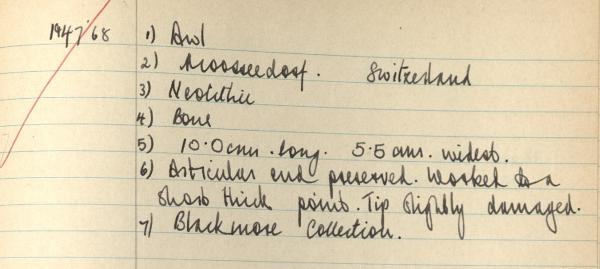 1947'68 1) Awl
2) Moosseedorf. Switzerland
3) Neolithic
4) Bone
5) 10.0 cms. long. 5.5 cms. widest.
6) Articular end preserved. Worked to a
short thick point. Tip slightly damaged.
7) Blackmore Collection.